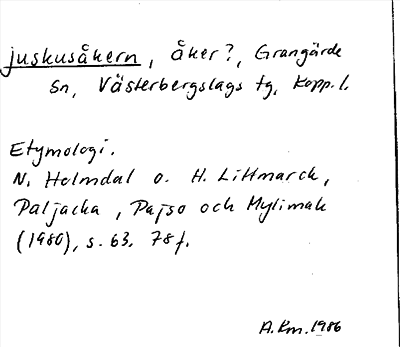 juskusåkern, åker?, Grangärde
Sn, Västerbergslags tg, Kopp.l.
Etymologi.
N. Holmdal o. H. Littmarck,
Paljacka, Pajso och Mylimak
(1980), s. 63. 78 f.
A.Km.1986